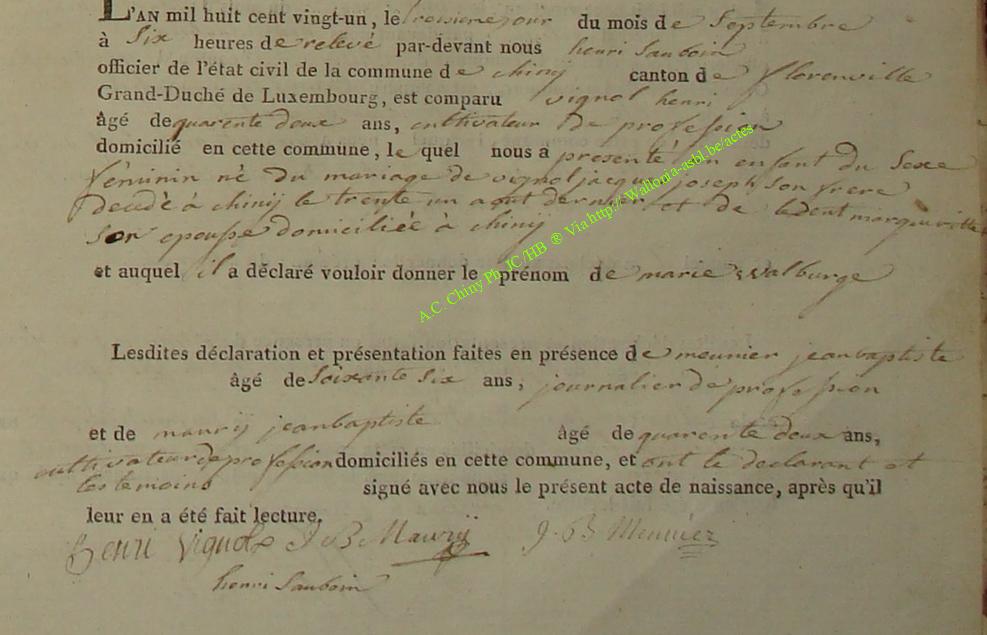 L'AN mil huit cent vingt-un, le troisieme jour du mois de Septembre
à Six heures de relevé par-devant nous henri Sauboin
officier de l'état civil de la commune de chinÿ canton de florenville
Grand-Duché de Luxembourg, est comparu vignol henri
âgé de quarente deux ans, cultivateur de profession
domicilié en cette commune, le quel nous a presenté un enfant du Sexe
féminin né du mariage de vignol jacque joseph Son frere
decedé à chinÿ le trente un aout dernier et de
Son epouse domiciliée à chinÿ
et auquel il a déclaré vouloir donner le prénom de marie Walburge
Lesdites déclaration et présentation faites en présence de meunier jean baptiste
âgé de Soixante Six ans, journalier de profession
et de maurÿ jean baptiste âgé de quarente deux ans,
cultivateur de profession domiciliés en cette commune, et ont le declarant et
les temoins signé avec nous le présent acte de naissance, après qu'il
leur en a été fait lecture.
Henri Vignol J B Maurÿ J. B Meunier
henri Sauboin
A.C. Chiny Ph. JC /HB ® Via http:// Wallonia-asbl.be/actes